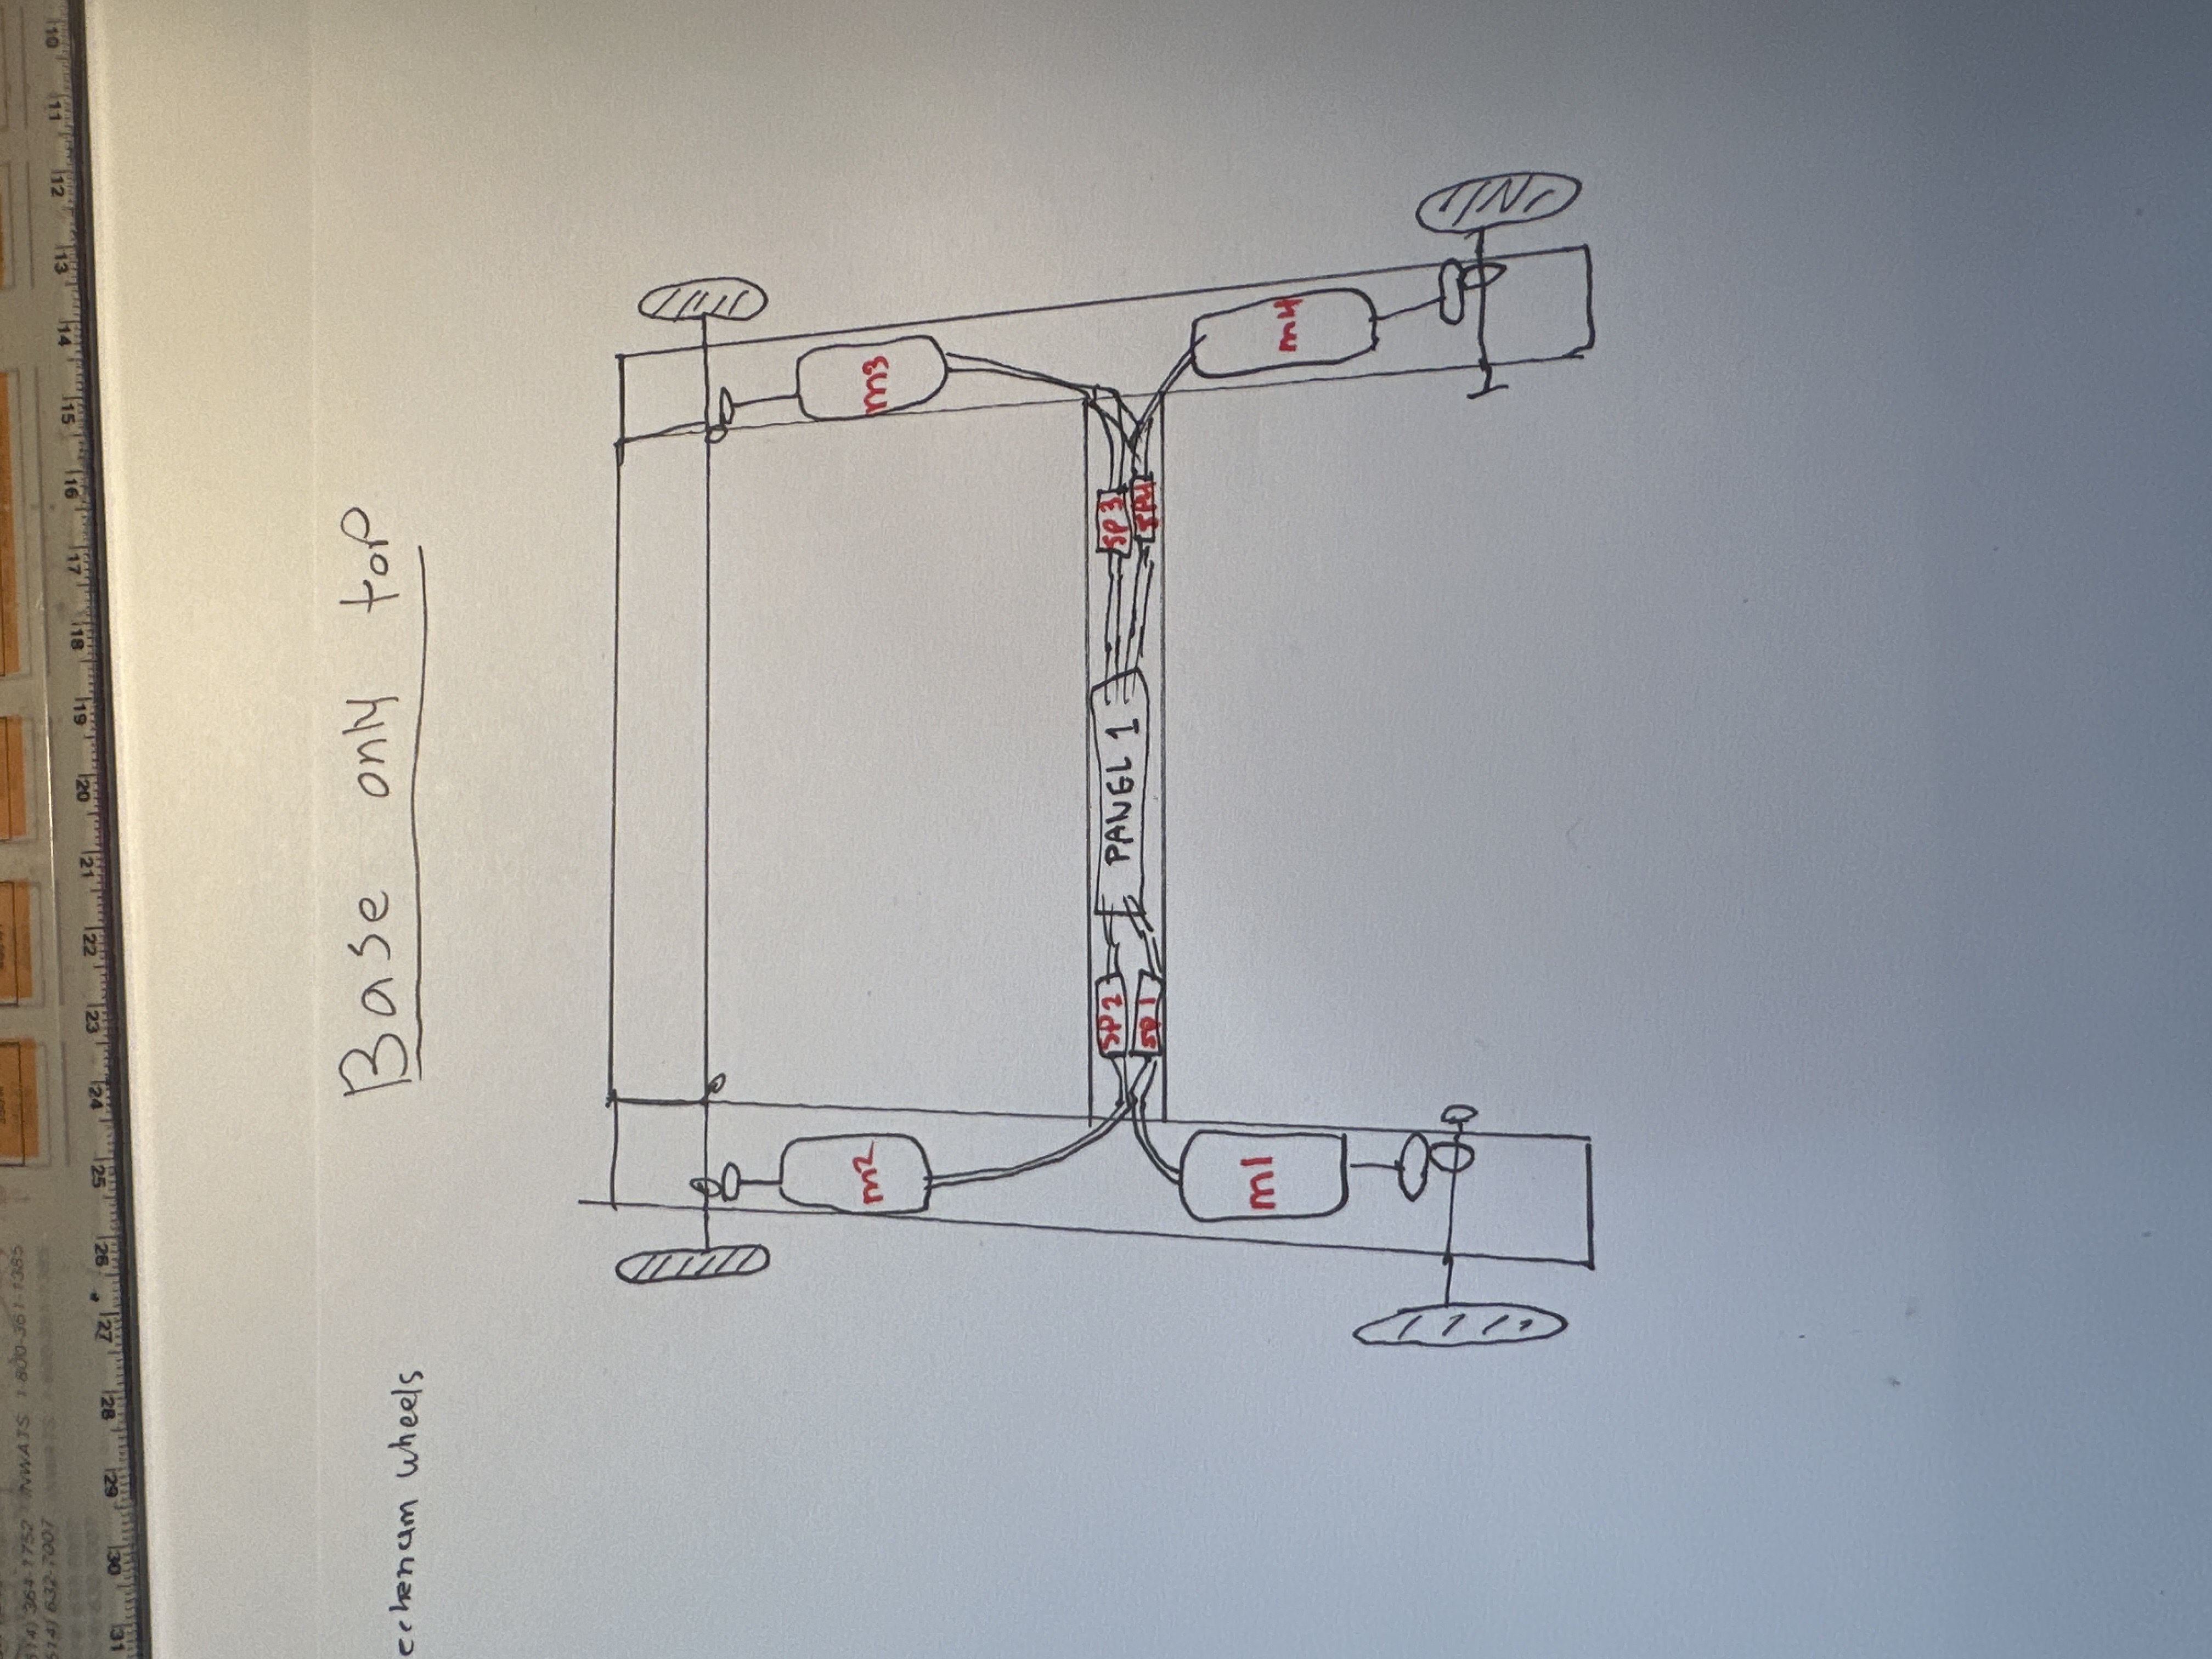 514) 364-1752 INWATS 1-800-361-1385
514) 632-7007
31 30 29 28 27 26 25 24 23 22 21 20 19 18 17 16 15 14 13 12 11 10
Base only top
echenum wheels
m2 m3
SP2 PANEL 1 SP3
SP1 SP4
m1 m4